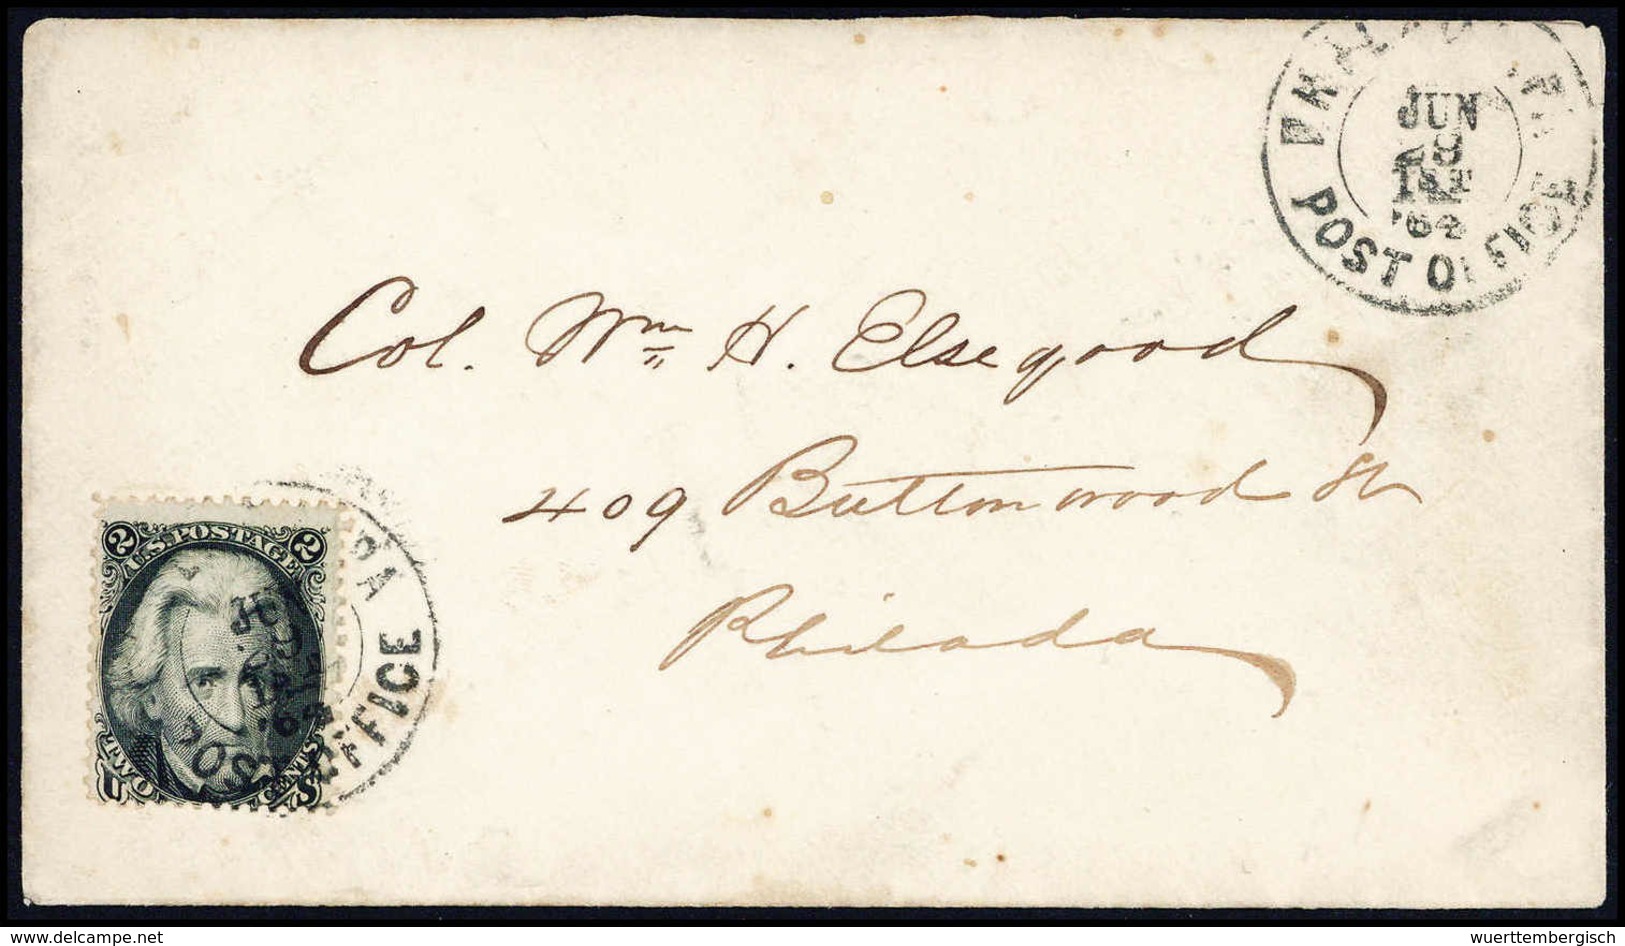 PHILAD'A PA.
JUN
28
'64
POST OFFICE
Col. Wm H. Elsegood
409 Buttonwood St
Philada
2 2
U.S. POSTAGE
TWO CENTS
U S
PA
OFFICE
delcampe.net
wuerttembergisch